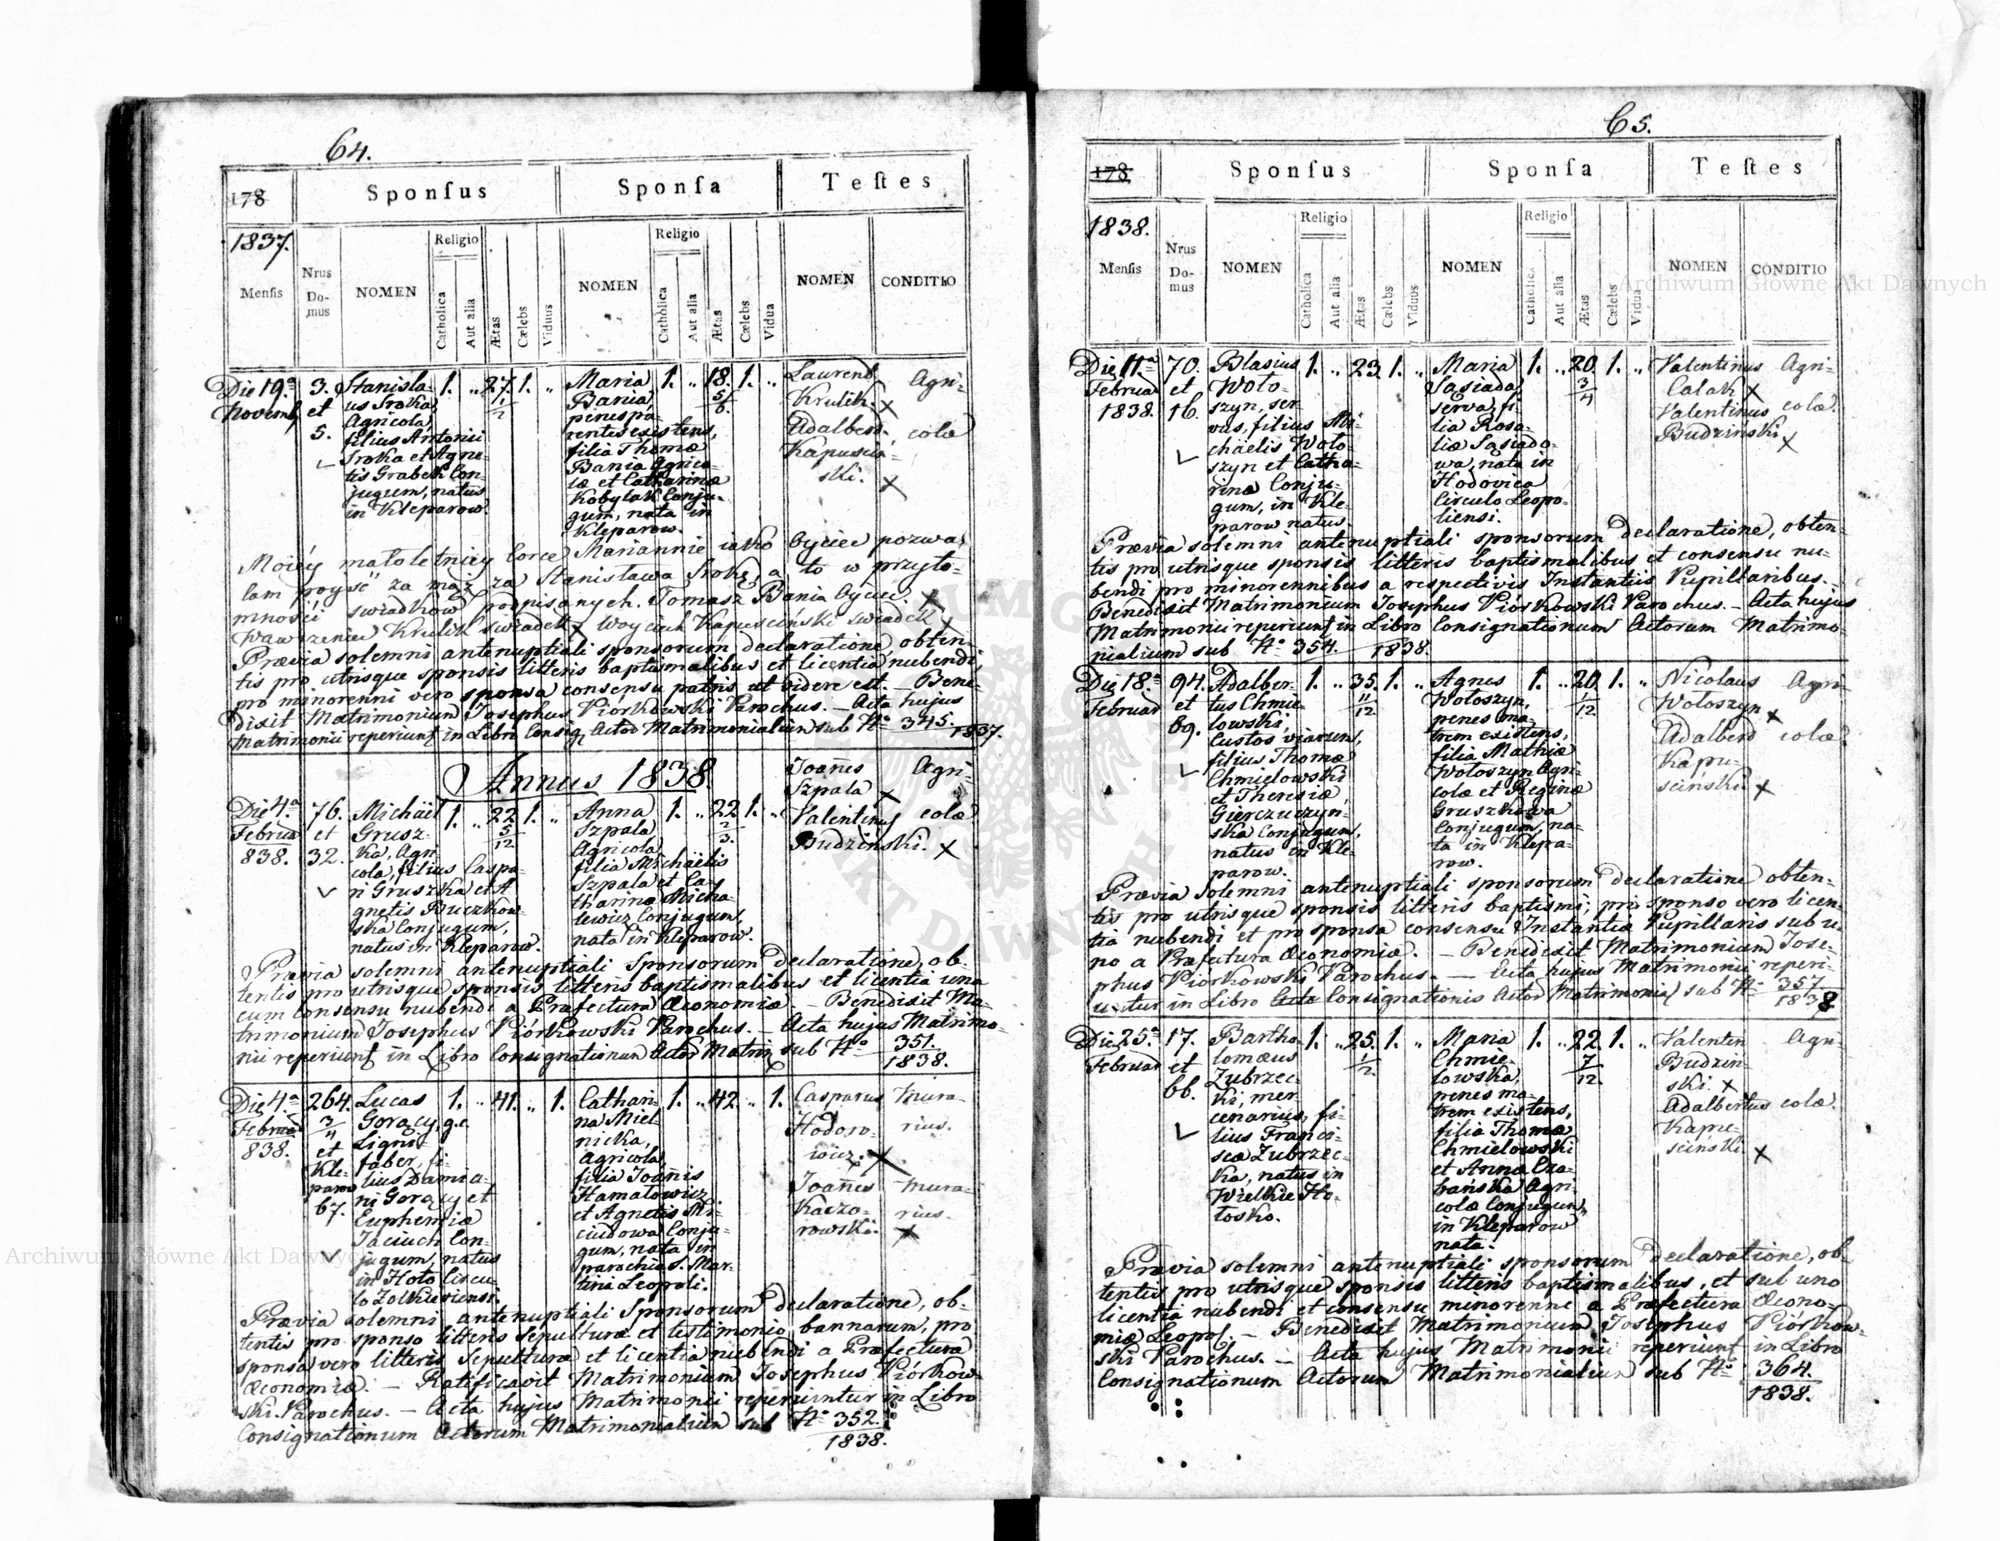 64.
178
Sponſus
Sponſa
Teſtes
1837.
Menſis
Nrus Do-mus
NOMEN
Religio
Catholica
Aut alia
Ætas
Cælebs
Viduus
NOMEN
Religio
Catholica
Aut alia
Ætas
Cælebs
Vidua
NOMEN
CONDITIO
Die 19ª
Novemb
3.
et
5.
Stanisla-
us Sroka,
Agricola,
filius Antonii
Sroka et Agne-
tis Grabek Con-
jugum, natus
in Kleparow.
1. „ 27. 1. „
1/2
Maria
Bania,
penes pa-
rentes existens,
filia Thomæ
Bania Agrico-
læ et Catharinæ
Kobylak Conju-
gum, nata in
Kleparow.
1. „ 18. 1. „
5/6.
Laurent.
Krulik. x
Adalbert.
Kapuscin-
ski. x
Agri-
colæ
Moiéy małoletniey Corce Mariannie iako Oyciec pozwa-
lam poysć za mąż za Stanisława Srokę, a to w przyto-
mności swiadkow podpisanych. Tomasz Bania Oyciec x
Wawrzeniec Krulik swiadek x Woyciech Kapusciński swiadek x
Prævia solemni antenuptiali sponsorum declaratione, obten-
tis pro utrisque sponsis litteris baptismalibus et licentia nubendi,
pro minorenni vero sponsa consensu patris ut videre est. — Bene-
dixit Matrimonium Josephus Piórkowski Parochus. — Acta hujus
Matrimonii reperiunt in Libro Consig. Actor Matrimonialium sub No 345.
1837.
Annus 1838.
Die 4ª
Februa
838.
76.
et
32.
Michäel
Grusz-
ka, Agri
cola, filius Caspa-
ri Gruszka et A
gnetis Buczkow-
ska Conjugum,
natus in Kleparow.
1. „ 22 1. „
5/12
Anna
Szpala
Agricola,
filia Michäelis
Szpala et Ca-
tharinæ Micha-
lewicz Conjugum,
nata in Kleparow.
1. „ 22 1. „
2/3.
Joañes
Szpala x
Valentinus
Budziński. x
Agri-
colæ
Prævia solemni antenuptiali Sponsorum Declaratione, ob-
tentis pro utrisque sponsis litteris baptismalibus et licentia una
cum consensu nubendi a Præfectura Œconomiæ — Benedixit Ma-
trimonium Josephus Piórkowski Parochus. — Acta hujus Matrimo-
nii reperiunt in Libro Consignationum Actor Matrim sub No 351.
1838.
Die 4ª
Februa
838.
264.
3/4
et
Kle-
parow
67.
Lucas
Gorący, g.c.
Ligni-
faber, fi-
lius Damia-
ni Gorący et
Euphemiæ
Jaciuch Con-
jugum, natus
in Hoto Circu-
lo Zolkieviensi.
1. „ 41. „ 1.
Cathari-
na Miel-
nicka,
Agricola,
filia Joañis
Hamalowicz
et Agnetis Mi-
ciudowa Conju-
gum, nata in
parochia S. Mar-
tini Leopoli.
1. „ 42. „ 1.
Casparus
Hodoro-
wicz. x
Joañes
Kaczo-
rowski. x
Mura-
rius.
Mura-
rius.
Prævia solemni antenuptiali Sponsorum declaratione, ob-
tentis pro sponso litteris sepulturæ et testimonio bannorum, pro
sponsa vero litteris sepulturæ et licentia nubendi a Præfectura
Œconomiæ. — Ratificavit Matrimonium Josephus Piórkow-
ski Parochus. — Acta hujus Matrimonii reperiuntur in Libro
Consignationum Actorum Matrimonialium sub No 352.
1838.
65.
178
Sponſus
Sponſa
Teſtes
1838.
Menſis
Nrus Do-mus
NOMEN
Religio
Catholica
Aut alia
Ætas
Cælebs
Viduus
NOMEN
Religio
Catholica
Aut alia
Ætas
Cælebs
Vidua
NOMEN
CONDITIO
Die 11ª
Februar
1838.
70.
et
16.
Blasius
Woło-
szyn, ser-
vus, filius Mi-
chäelis Woło-
szyn et Catha-
rinæ Conju-
gum, in Kle-
parow natus.
1. „ 23. 1. „
Maria
Sasiada,
serva, fi-
lia Rosa-
liæ Sasiado-
wa, nata in
Hodovica
Circulo Leopo-
liensi.
1. „ 20. 1. „
3/4
Valentinus
Calak x
Valentinus
Budziński x
Agri-
colæ.
Prævia solemni antenuptiali sponsorum Declaratione, obten-
tis pro utrisque sponsis litteris baptismalibus et consensu nu-
bendi pro minorennibus a respectivis Instantiis Pupillaribus. —
Benedixit Matrimonium Josephus Piórkowski Parochus. — Acta hujus
Matrimonii reperiunt in Libro Consignationum Actorum Matrimo-
nialium sub No 354. 1838.
Die 18ª
Februar
94.
et
69.
Adalber-
tus Chmie-
lowski,
Custos viarum,
filius Thomæ
Chmielowski
et Theresiæ,
Gierczuczyn-
ska Conjugum,
natus in Kle-
parow.
1. „ 35. 1. „
11/12
Agnes
Wołoszyn,
penes ma-
trem existens,
filia Mathiæ
Wołoszyn Agri-
colæ et Reginæ
Gruszkowa
Conjugum, na-
ta in Klepa-
row.
1. „ 20. 1. „
1/12
Nicolaus
Wołoszyn x
Adalbert
Kapu-
sciński. x
Agri-
colæ.
Prævia solemni antenuptiali sponsorum Declaratione obten-
tis pro utrisque sponsis litteris baptismi; pro sponso vero licen-
tia nubendi et pro sponsa consensu Instantiæ Pupillaris sub u-
no a Præfectura Œconomiæ. — Benedixit Matrimonium Jose-
phus Piórkowski Parochus. — Acta hujus Matrimonii reperi-
untur in Libro Consignationis Actor Matrimonial sub No 357.
1838
Die 25ª
Februar
17.
et
66.
Bartho-
lomæus
Zubrzec-
ki, mer
cenarius, fi-
lius Franci-
sci Zubrzec-
ka, natus in
Wielkie Ho-
łosko.
1. „ 25. 1. „
1/2.
Maria
Chmie-
lowska,
penes ma-
trem existens,
filia Thomæ
Chmielowski
et Annæ Cza-
bańska Agri-
colæ Conjugum,
in Kleparow
nata.
1. „ 22. 1. „
7/12.
Valenten
Budzin-
ski. x
Adalbertus
Kapu-
sciński. x
Agri-
colæ.
Prævia solemni antenuptiali sponsorum Declaratione, ob-
tentis pro utrisque sponsis litteris baptismalibus, et sub uno
licentia nubendi et consensu minorenne a Præfectura Œcono-
miæ Leopol. — Benedixit Matrimonium Josephus Piórkow-
ski Parochus. — Acta hujus Matrimonii reperiunt in Libro
Consignationum Actorum Matrimonialium sub No 364.
1838.
Archiwum Główne Akt Dawnych
Archiwum Główne Akt Dawnych